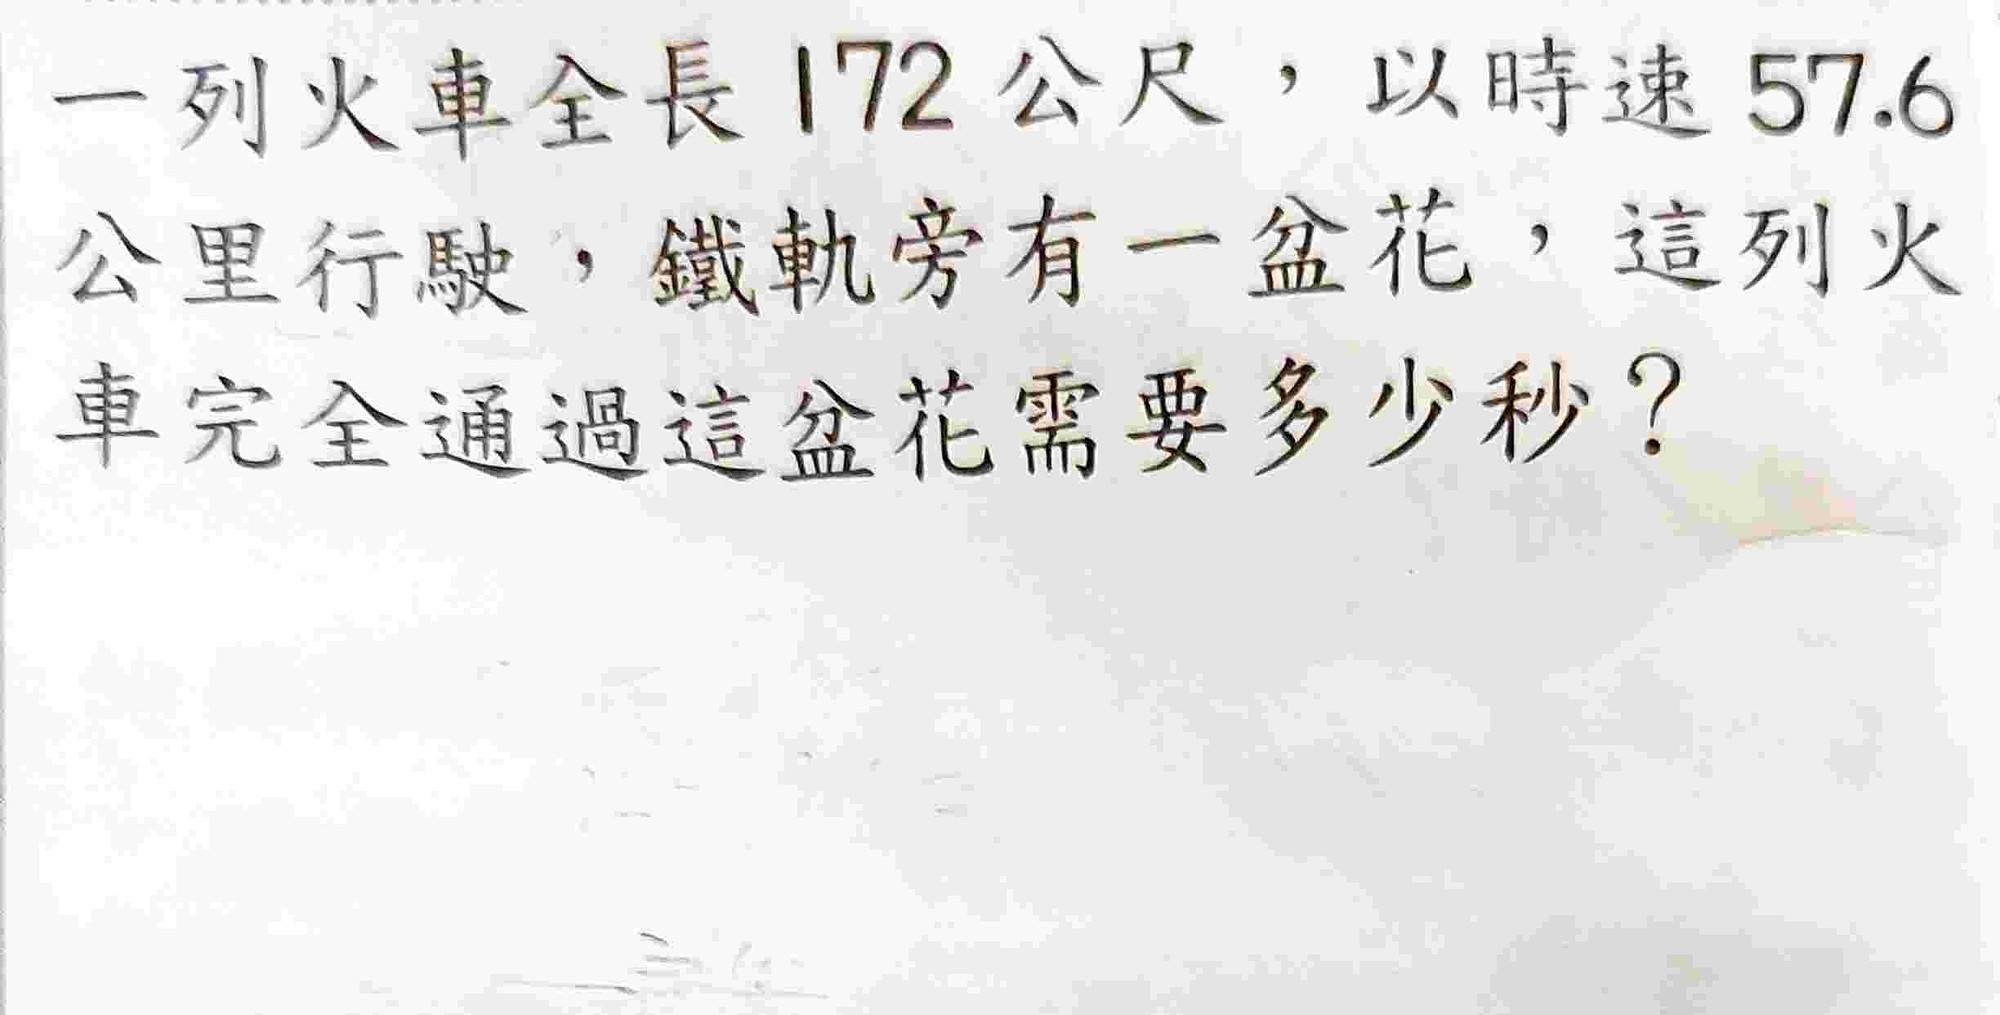 一列火車全長172公尺，以時速57.6
公里行駛，鐵軌旁有一盆花，這列火
車完全通過這盆花需要多少秒？